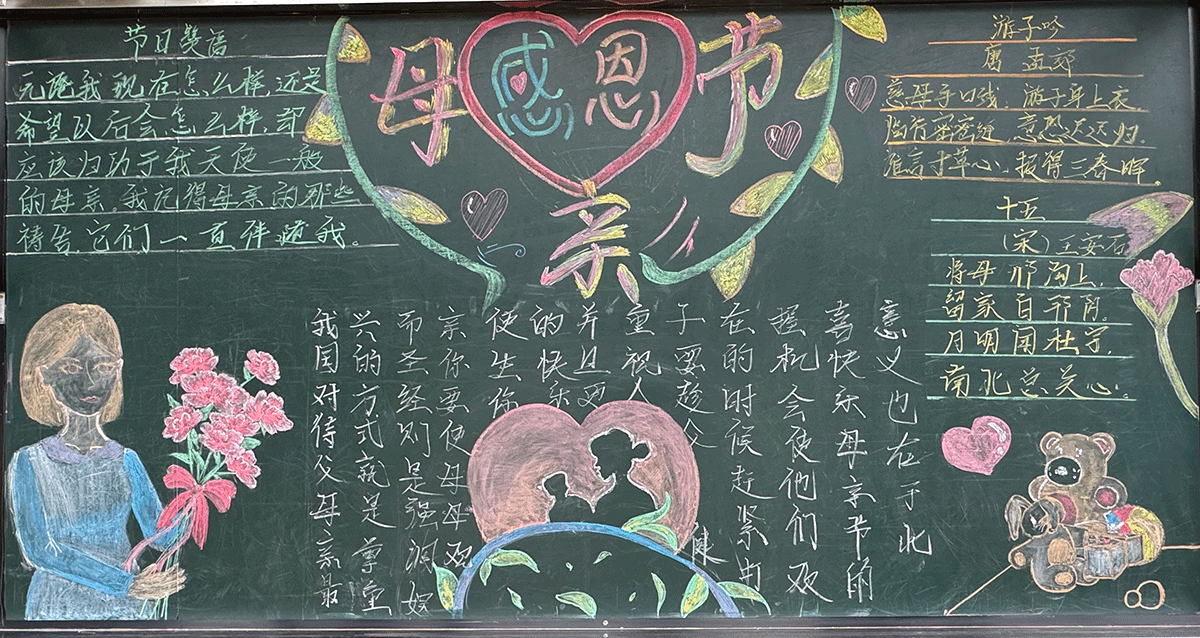 母感恩节
亲
节日
无论我现在怎么样,还是
希望以后会怎么样,都
应该归功于我天使一般
的母亲。我记得母亲的那些
祷告,它们一直伴随我。
游子吟
唐 孟郊
慈母手中线,游子身上衣。
临行密密缝,意恐迟迟归。
谁言寸草心,报得三春晖。
十五
(宋)王安石
将母邗沟上,
留家白邗阴。
月明闻杜宇,
南北总关心。
我国对待父母亲最
兴的方式就是尊重
而圣经则是强调娱
亲你要使母母欢
使生你
的快乐
并且要
重视人
子要趁父健
在的时候赶紧由
提机会使他们欢
喜快乐母亲节的
意义也在于此